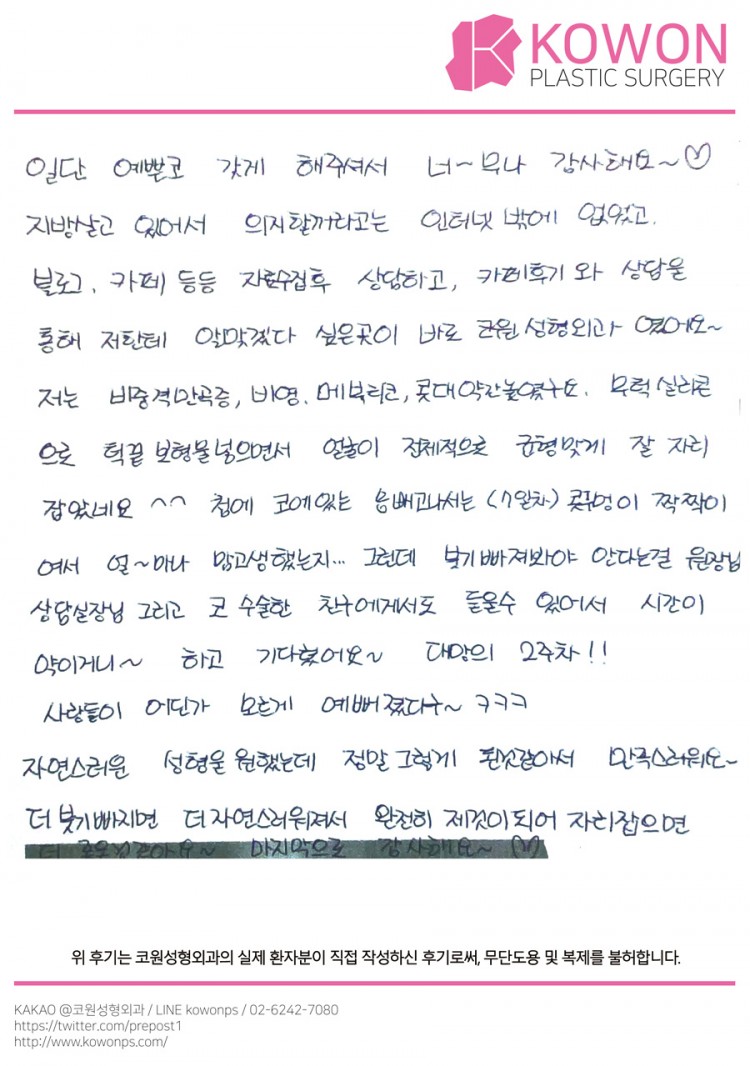 KOWON
PLASTIC SURGERY
일단 예쁜코 갖게 해주셔서 너~무나 감사해요~♡
지방살고 있어서 의지할꺼라고는 인터넷 밖에 없었고.
블로그, 카페 등등 자료수집후 상담하고, 카페후기와 상담을
통해 저한테 알맞겠다 싶은곳이 바로 코원성형외과 였어요~
저는 비중격만곡증, 비염, 메부리코, 콧대약간높였구요. 무턱 실리콘
으로 턱끝 보형물넣으면서 얼굴이 전체적으로 균형맞게 잘 자리
잡았네요 ^^ 첨에 코에있는 솜빼고나서는 (7일차) 콧구멍이 짝짝이
여서 얼~마나 맘고생했는지... 그런데 붓기빠져봐야 안다는걸 원장님
상담실장님 그리고 코 수술한 친구에게서도 들을수 있어서 시간이
약이거니~ 하고 기다렸어요~ 대망의 2주차!!
사람들이 어딘가 모르게 예뻐졌다구~ ㅋㅋㅋ
자연스러운 성형을 원했는데 정말 그렇게 된것같아서 만족스러워요~
더 붓기빠지면 더 자연스러워져서 완전히 제것이되어 자리잡으면
더 좋을것같아요~ 마지막으로 감사해요~ ♡
위 후기는 코원성형외과의 실제 환자분이 직접 작성하신 후기로써, 무단도용 및 복제를 불허합니다.
KAKAO @코원성형외과 / LINE kowonps / 02-6242-7080
https://twitter.com/prepost1
http://www.kowonps.com/